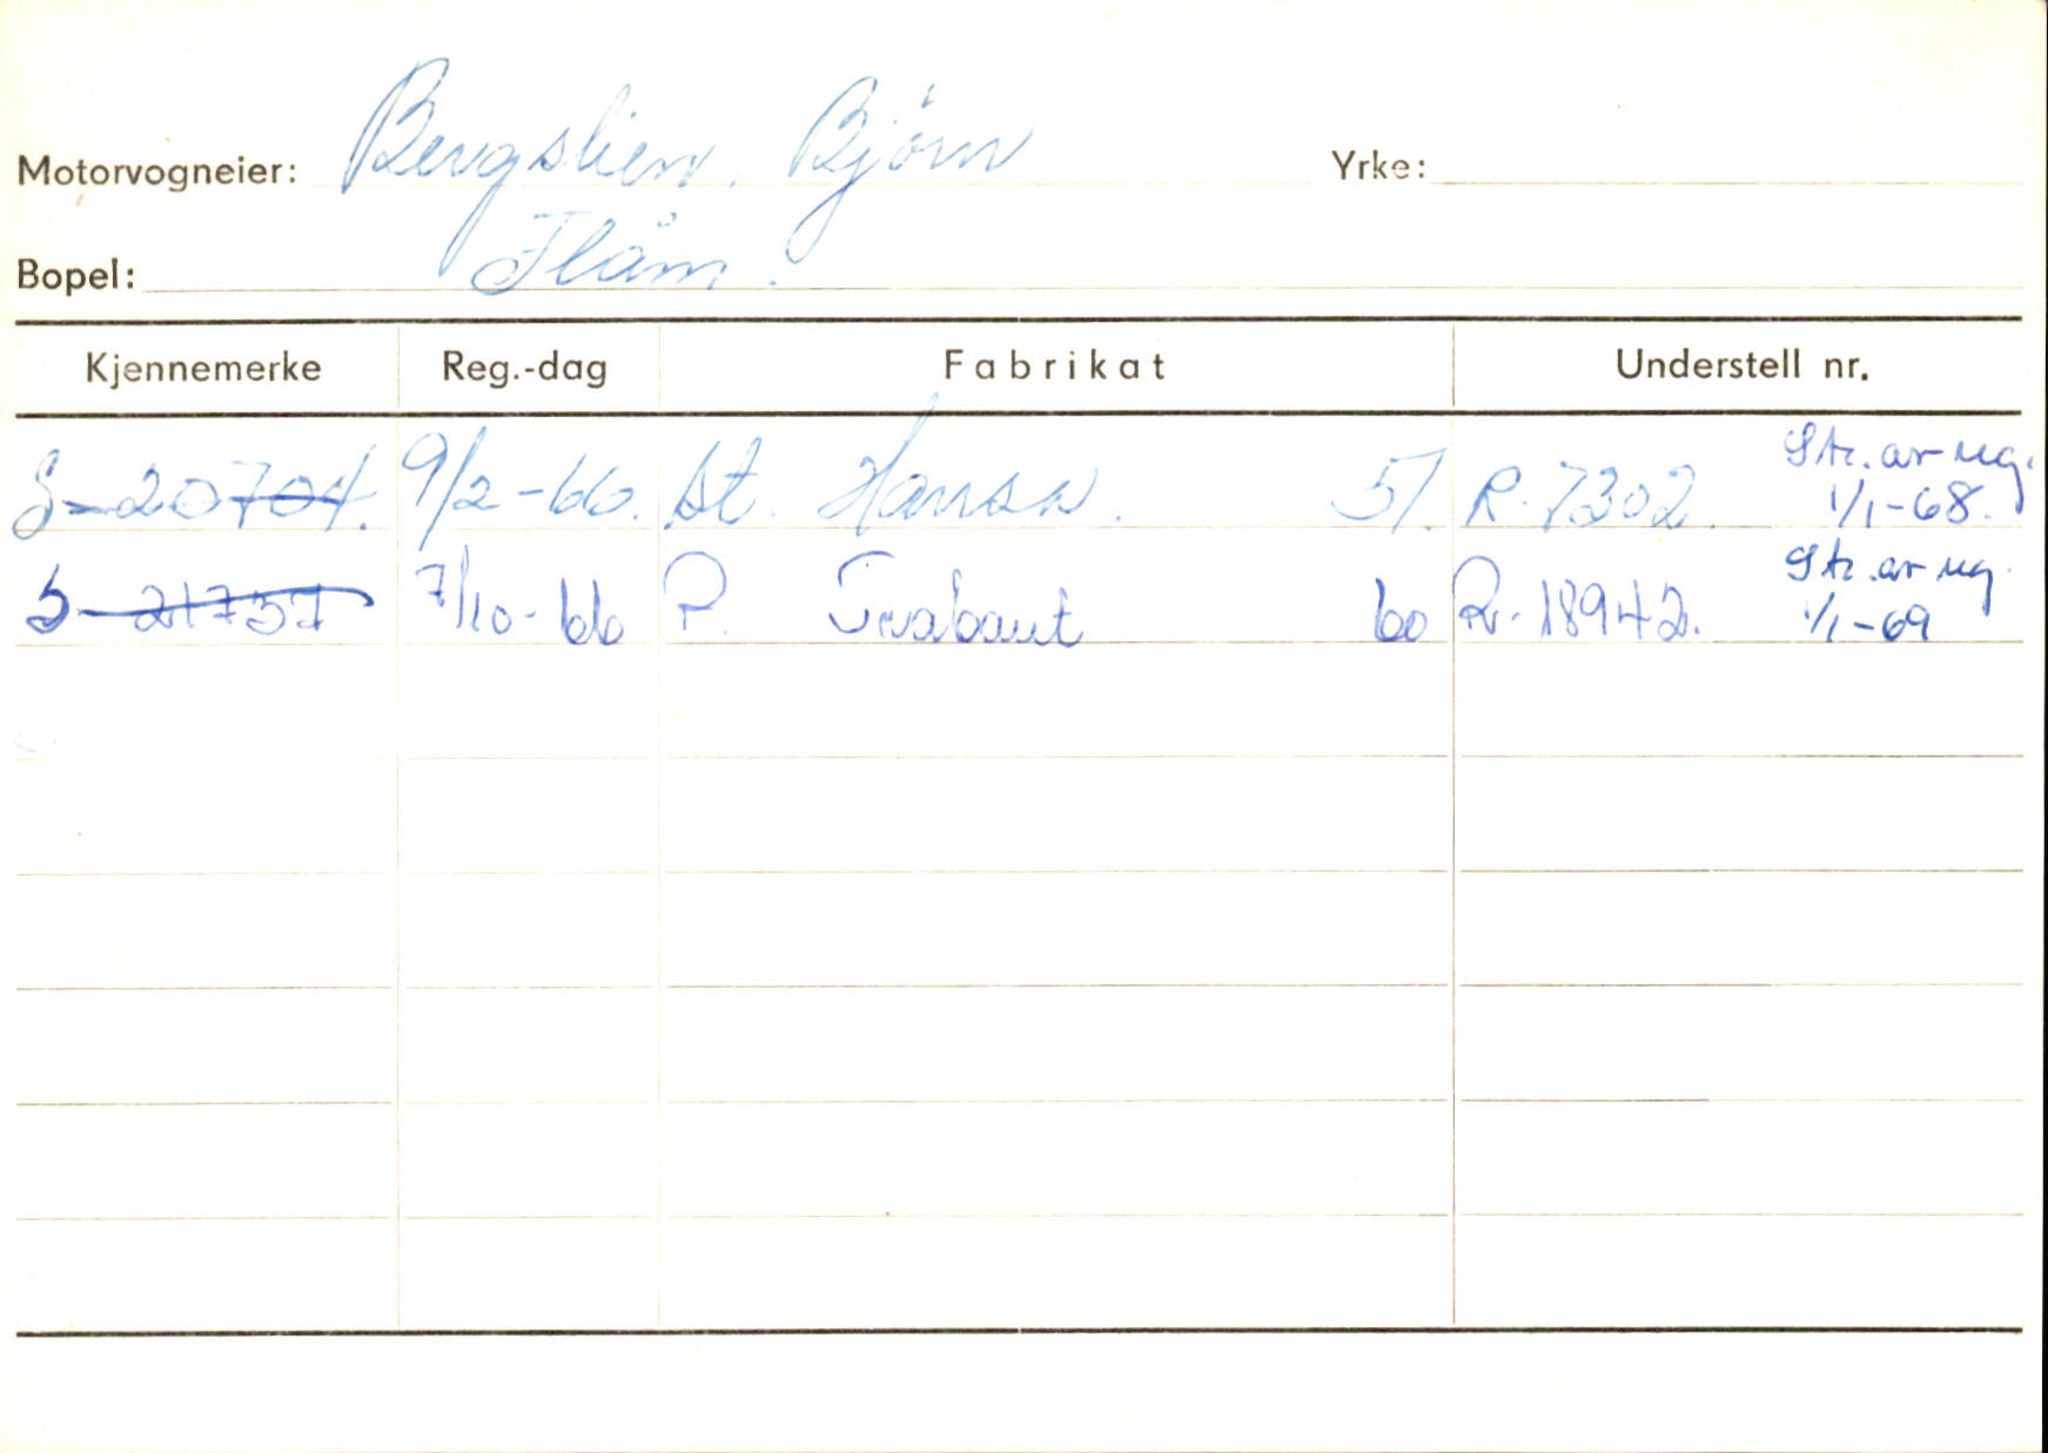 Motorvogneier: Bergslien, Bjørn Yrke:
Bopel: Flåm.
Kjennemerke Reg.-dag Fabrikat Understell nr.
S-20704. 9/2-66. st. Hansa. 51. R. 7302. Str. av reg. 1/1-68.
S-21737 7/10-66 P. Trabant 60 R. 18942. Str. av reg. 1/1-69